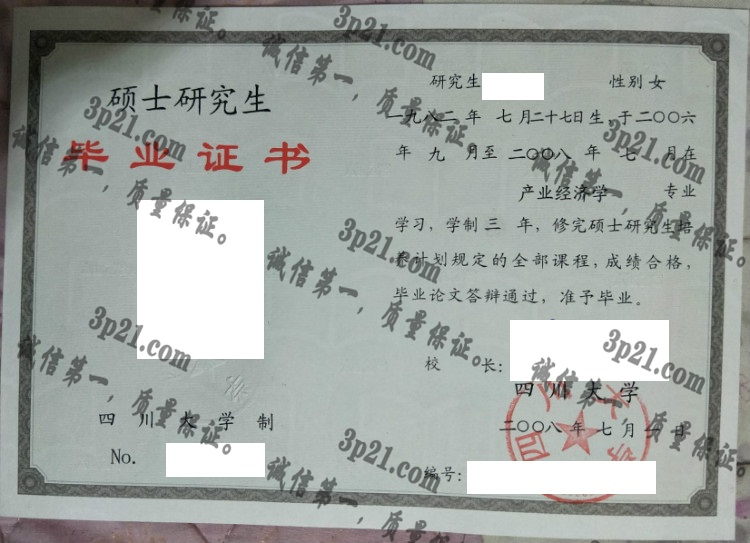 硕士研究生
毕业证书
四川大学制
No.
研究生 性别 女
一九八二年 七月二十七日生 于二〇〇六
年 九 月至 二〇〇八 年 七 月在
产业经济学 专业
学习，学制 三 年，修完硕士研究生培
养计划规定的全部课程，成绩合格，
毕业论文答辩通过，准予毕业。
校 长：
四川大学
二〇〇八年 七月一日
编号：
3p21.com
诚信第一，质量保证。
3p21.com
诚信第一，质量保证。
3p21.com
诚信第一，质量保证。
3p21.com
诚信第一，质量保证。
3p21.com
诚信第一，质量保证。
3p21.com
诚信第一，质量保证。
3p21.com
诚信第一，质量保证。